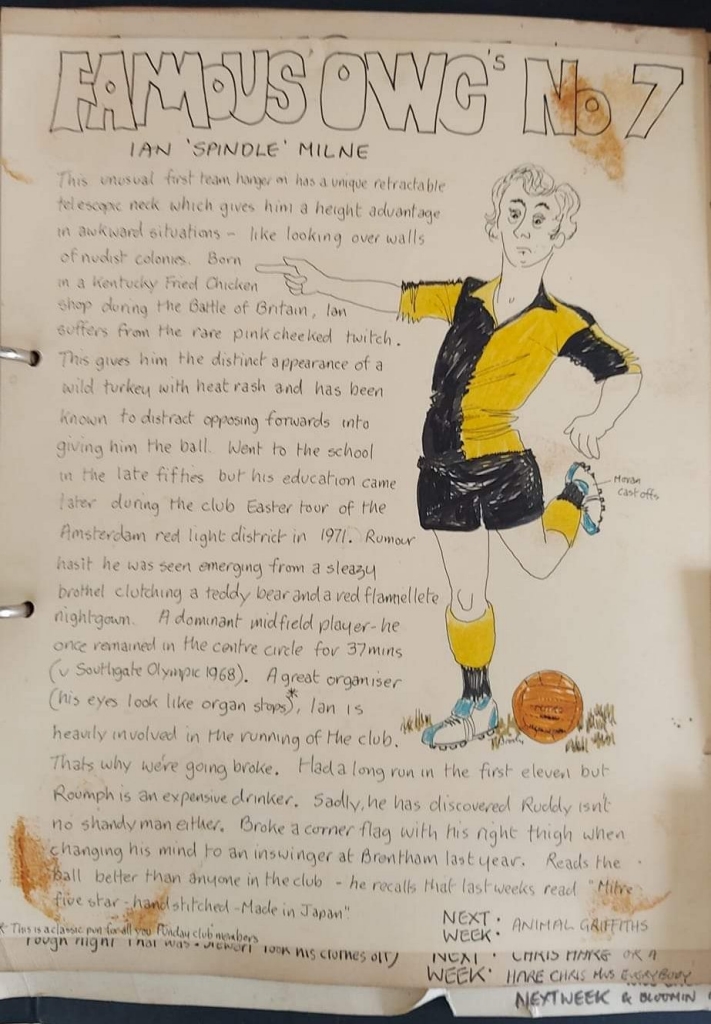 FAMOUS OWC's No 7
IAN 'SPINDLE' MILNE
This unusual first team hanger on has a unique retractable
telescopic neck which gives him a height advantage
in awkward situations - like looking over walls
of nudist colonies. Born
in a Kentucky Fried Chicken
shop during the Battle of Britain, Ian
suffers from the rare pink cheeked twitch.
This gives him the distinct appearance of a
wild turkey with heat rash and has been
known to distract opposing forwards into
giving him the ball. Went to the school
in the late fifties but his education came
later during the club Easter tour of the
Amsterdam red light district in 1971. Rumour
hasit he was seen emerging from a sleazy
brothel clutching a teddy bear and a red flannellete
nightgown. A dominant midfield player - he
once remained in the centre circle for 37 mins
(v Southgate Olympic 1968). A great organiser
(his eyes look like organ stops)*, Ian is
heavily involved in the running of the club.
Thats why we're going broke. Had a long run in the first eleven but
Roumph is an expensive drinker. Sadly, he has discovered Ruddy isn't
no shandy man either. Broke a corner flag with his right thigh when
changing his mind to an inswinger at Brentham last year. Reads the
ball better than anyone in the club - he recalls that last weeks read "Mitre
five star - hand stitched - Made in Japan".
Moran
cast offs
NEXT
WEEK: ANIMAL GRIFFITHS
* This is a classic pun for all you Punday club members
rough night that was. took his clothes off)
NEXT
WEEK: CHRIS HARE OR A
HARE CHRIS HAS EVERYBODY
NEXT WEEK & BLOOMIN